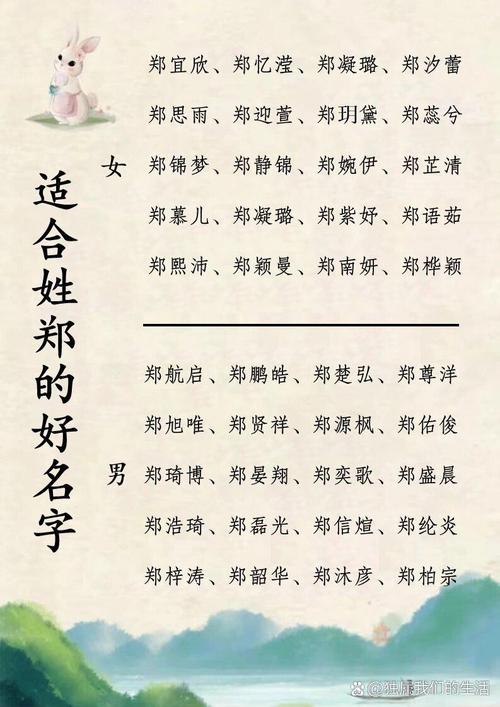 适合姓郑的好名字
女
郑宜欣、郑忆滢、郑凝璐、郑汐蕾
郑思雨、郑迎萱、郑玥黛、郑蕊兮
郑锦梦、郑静锦、郑婉伊、郑芷清
郑慕儿、郑凝璐、郑紫妤、郑语茹
郑熙沛、郑颖曼、郑南妍、郑桦颖
男
郑航启、郑鹏皓、郑楚弘、郑尊洋
郑旭唯、郑贤祥、郑源枫、郑佑俊
郑琦博、郑晏翔、郑奕歌、郑盛晨
郑浩琦、郑磊光、郑信煊、郑纶炎
郑梓涛、郑韶华、郑沐彦、郑柏宗
@独属我们的生活